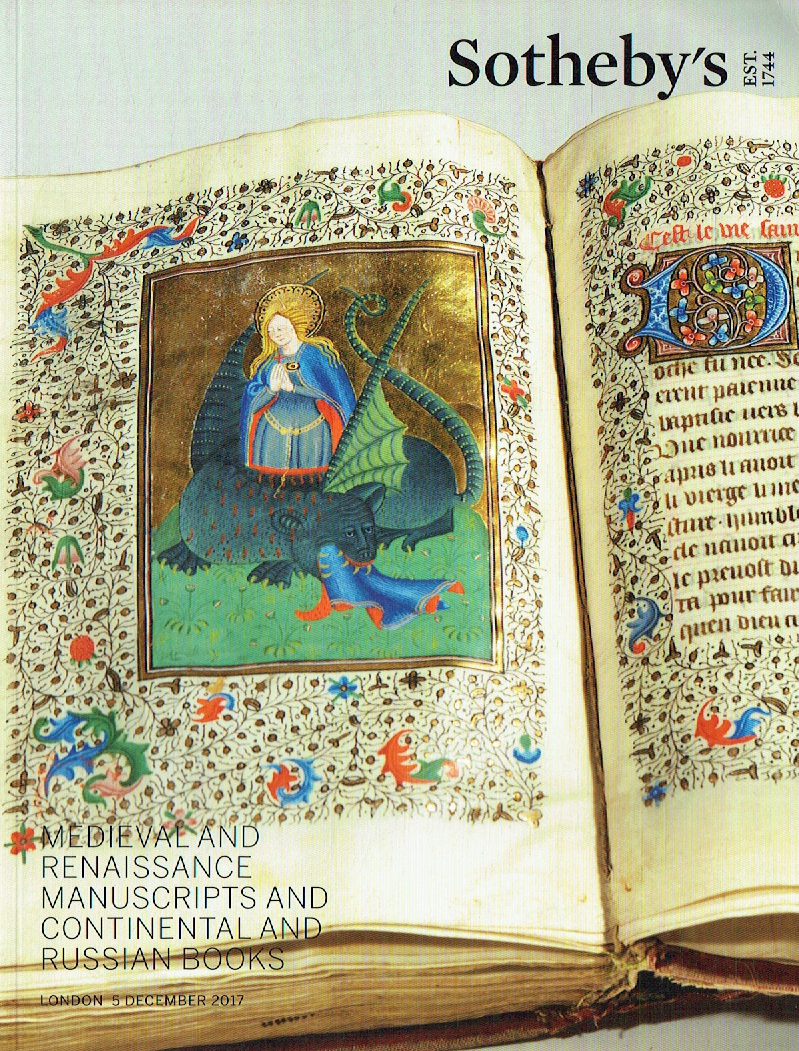 Sotheby's
EST.
1744
C'est le vie sain
oche fu nee. Se
erent paienne
baptisie uers l
Une nourrice
apris li auoit
li vierge li me
humble
de nauoit
le preuost du
ta pour fair
quen dieu a
MEDIEVAL AND
RENAISSANCE
MANUSCRIPTS AND
CONTINENTAL AND
RUSSIAN BOOKS
LONDON 5 DECEMBER 2017